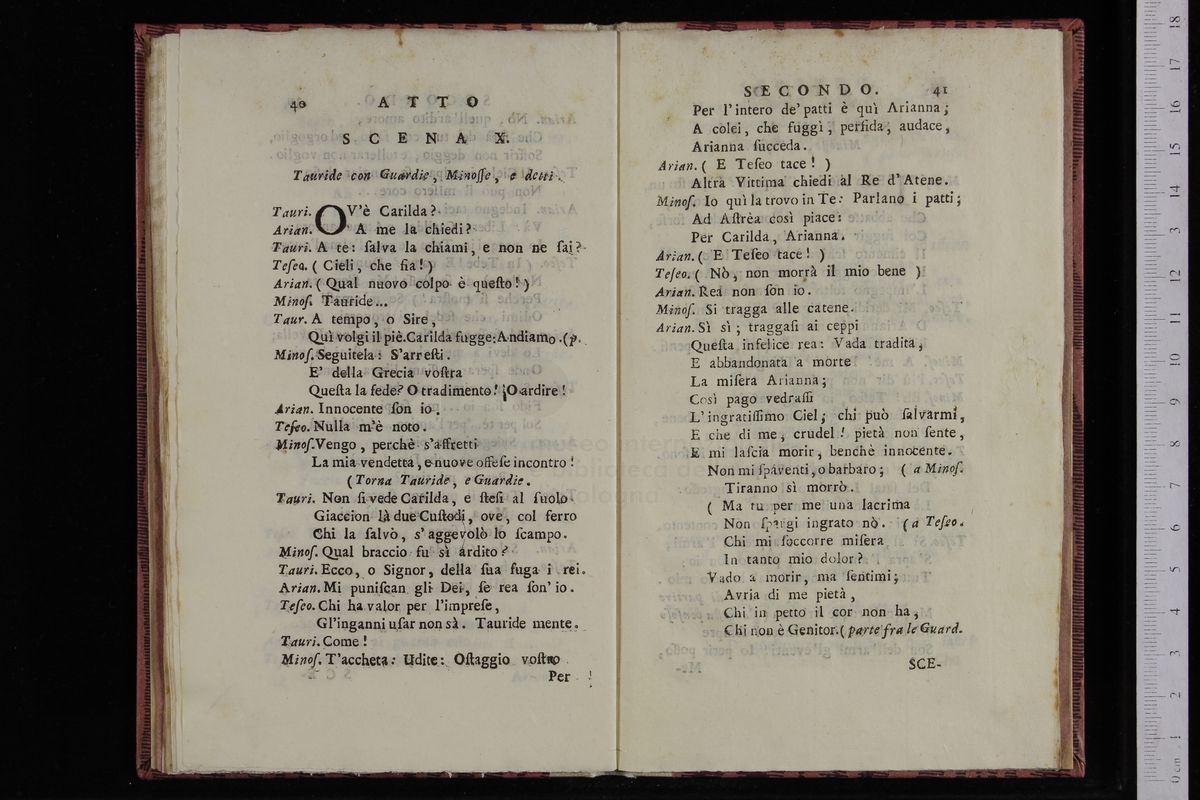 40 ATTO
SCENA X.
Tauride con Guardie, Minoſſe, e detti.
Tauri. OV'è Carilda?
Arian. A me la chiedi?
Tauri. A te: ſalva la chiami, e non ne ſai?
Teſeo. ( Cieli, che fia! )
Arian. ( Qual nuovo colpo è queſto! )
Minoſ. Tauride...
Taur. A tempo, o Sire,
Quì volgi il piè. Carilda fugge: Andiamo. (p.
Minoſ. Seguitela: S'arreſti.
E' della Grecia voſtra
Queſta la fede? O tradimento! O ardire!
Arian. Innocente ſon io.
Teſeo. Nulla m'è noto.
Minoſ. Vengo, perchè s'affretti
La mia vendetta, e nuove offeſe incontro!
( Torna Tauride, e Guardie.
Tauri. Non ſi vede Carilda, e ſteſi al ſuolo
Giaccion là due Cuſtodi, ove, col ferro
Chi la ſalvò, s'aggevolò lo ſcampo.
Minoſ. Qual braccio fu sì ardito?
Tauri. Ecco, o Signor, della ſua fuga i rei.
Arian. Mi puniſcan gli Dei, ſe rea ſon' io.
Teſeo. Chi ha valor per l'impreſe,
Gl'inganni uſar non sà. Tauride mente.
Tauri. Come!
Minoſ. T'accheta: Udite: Oſtaggio voſtro
Per
SECONDO. 41
Per l'intero de' patti è quì Arianna;
A colei, che fuggì, perfida, audace,
Arianna ſucceda.
Arian. ( E Teſeo tace! )
Altra Vittima chiedi al Re d'Atene.
Minoſ. Io quì la trovo in Te: Parlano i patti;
Ad Aſtrèa così piace:
Per Carilda, Arianna.
Arian. ( E Teſeo tace! )
Teſeo. ( Nò, non morrà il mio bene )
Arian. Rea non ſon io.
Minoſ. Si tragga alle catene.
Arian. Sì sì; traggaſi ai ceppi
Queſta infelice rea: Vada tradita,
E abbandonata a morte
La miſera Arianna;
Così pago vedraſſi
L'ingratiſſimo Ciel; chi può ſalvarmi,
E che di me, crudel! pietà non ſente,
E mi laſcia morir, benchè innocente.
Non mi ſpaventi, o barbaro; ( a Minoſ.
Tiranno sì morrò.
( Ma tu per me una lacrima
Non ſpargi ingrato nò. ( a Teſeo.
Chi mi ſoccorre miſera
In tanto mio dolor?
Vado a morir, ma ſentimi;
Avria di me pietà,
Chi in petto il cor non ha,
Chi non è Genitor. ( parte fra le Guard.
SCE-